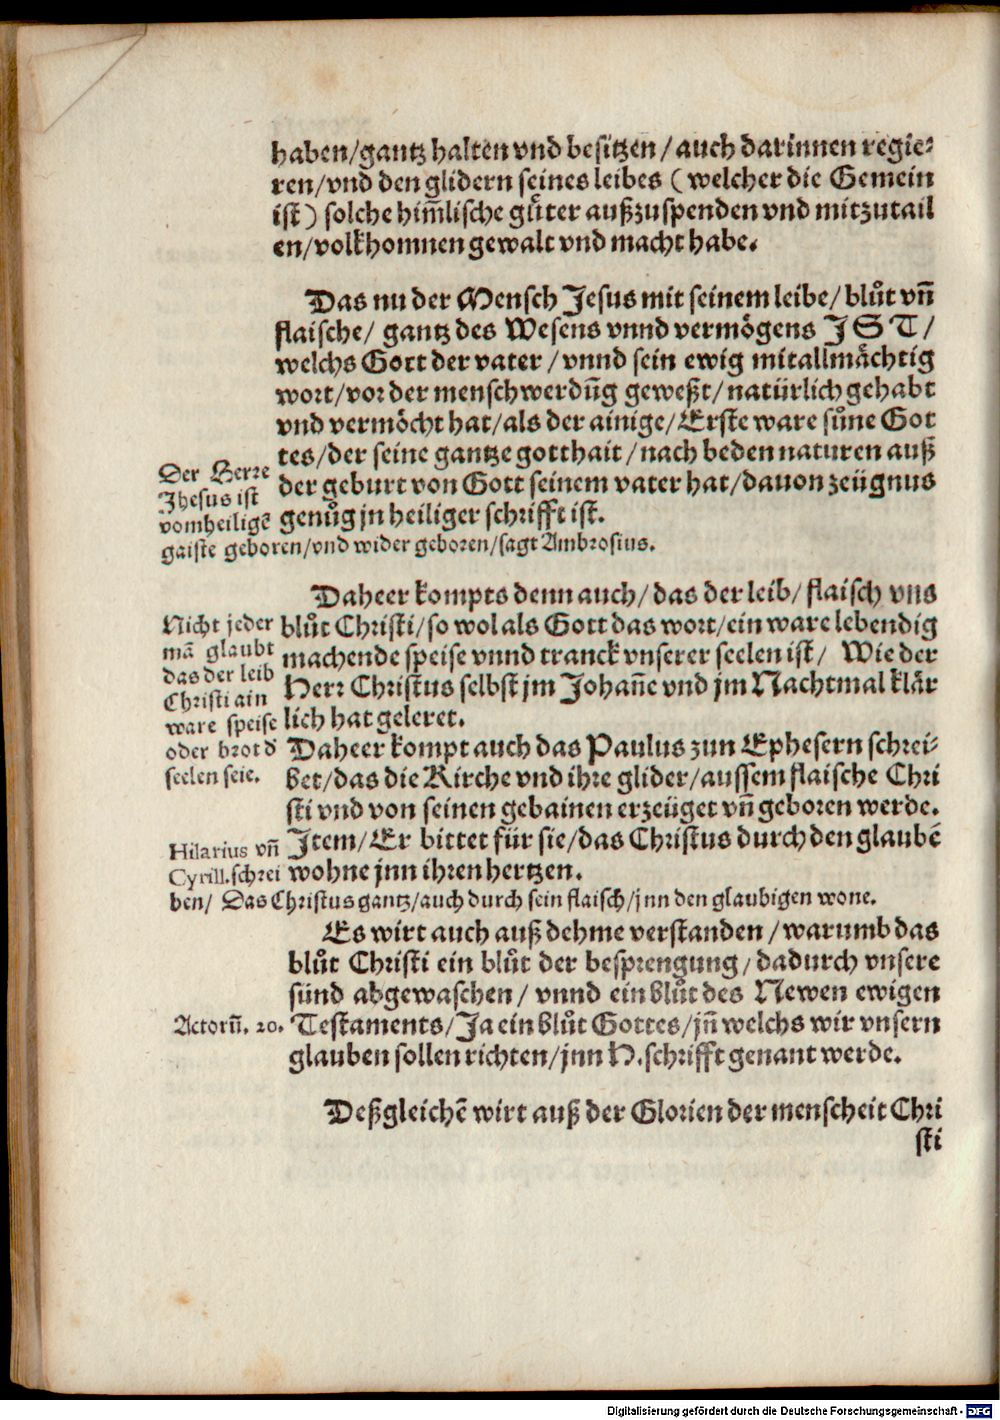 haben/gantz halten vnd besitzen/auch darinnen regie-
ren/vnd den glidern seines leibes (welcher die Gemein
ist) solche him̃lische gůter außzuspenden vnd mitzutail
en/volkhomnen gewalt vnd macht habe.
Das nu der Mensch Jesus mit seinem leibe/blůt vñ
flaische/ gantz des Wesens vnnd vermögens J S T/
welchs Gott der vater/vnnd sein ewig mitallmächtig
wort/vor der menschwerdũg geweßt/natürlich gehabt
vnd vermöcht hat/als der ainige/Erste ware sůne Got
tes/der seine gantze gotthait/nach beden naturen auß
der geburt von Gott seinem vater hat/dauon zeügnus
genůg jn heiliger schrifft ist.
Der Herre
Jhesus ist
vom heiligẽ
gaiste geboren/vnd wider geboren/sagt Ambrosius.
Daheer kompts denn auch/das der leib/flaisch vns
blůt Christi/so wol als Gott das wort/ein ware lebendig
machende speise vnnd tranck vnserer seelen ist/ Wie der
Herr Christus selbst jm Johañe vnd jm Nachtmal klär
lich hat geleret.
Nicht jeder
mã glaubt
das der leib
Christi ain
ware speise
oder brot d̓
seelen seie.
Daheer kompt auch das Paulus zun Ephesern schrei-
bet/das die Kirche vnd ihre glider/aussem flaische Chri
sti vnd von seinen gebainen erzeüget vñ geboren werde.
Item/Er bittet für sie/das Christus durch den glaubẽ
wohne jnn ihren hertzen.
Hilarius vñ
Cyrill.schrei
ben/ Das Christus gantz/auch durch sein flaisch/jnn den glaubigen wone.
Es wirt auch auß dehme verstanden/warumb das
blůt Christi ein blůt der besprengung/dadurch vnsere
sünd abgewaschen/ vnnd ein blůt des Newen ewigen
Testaments/Ja ein blůt Gottes/jñ welchs wir vnsern
glauben sollen richten/jnn H.schrifft genant werde.
Actorũ. 20.
Deßgleichẽ wirt auß der Glorien der menscheit Chri
sti
Digitalisierung gefördert durch die Deutsche Forschungsgemeinschaft - DFG